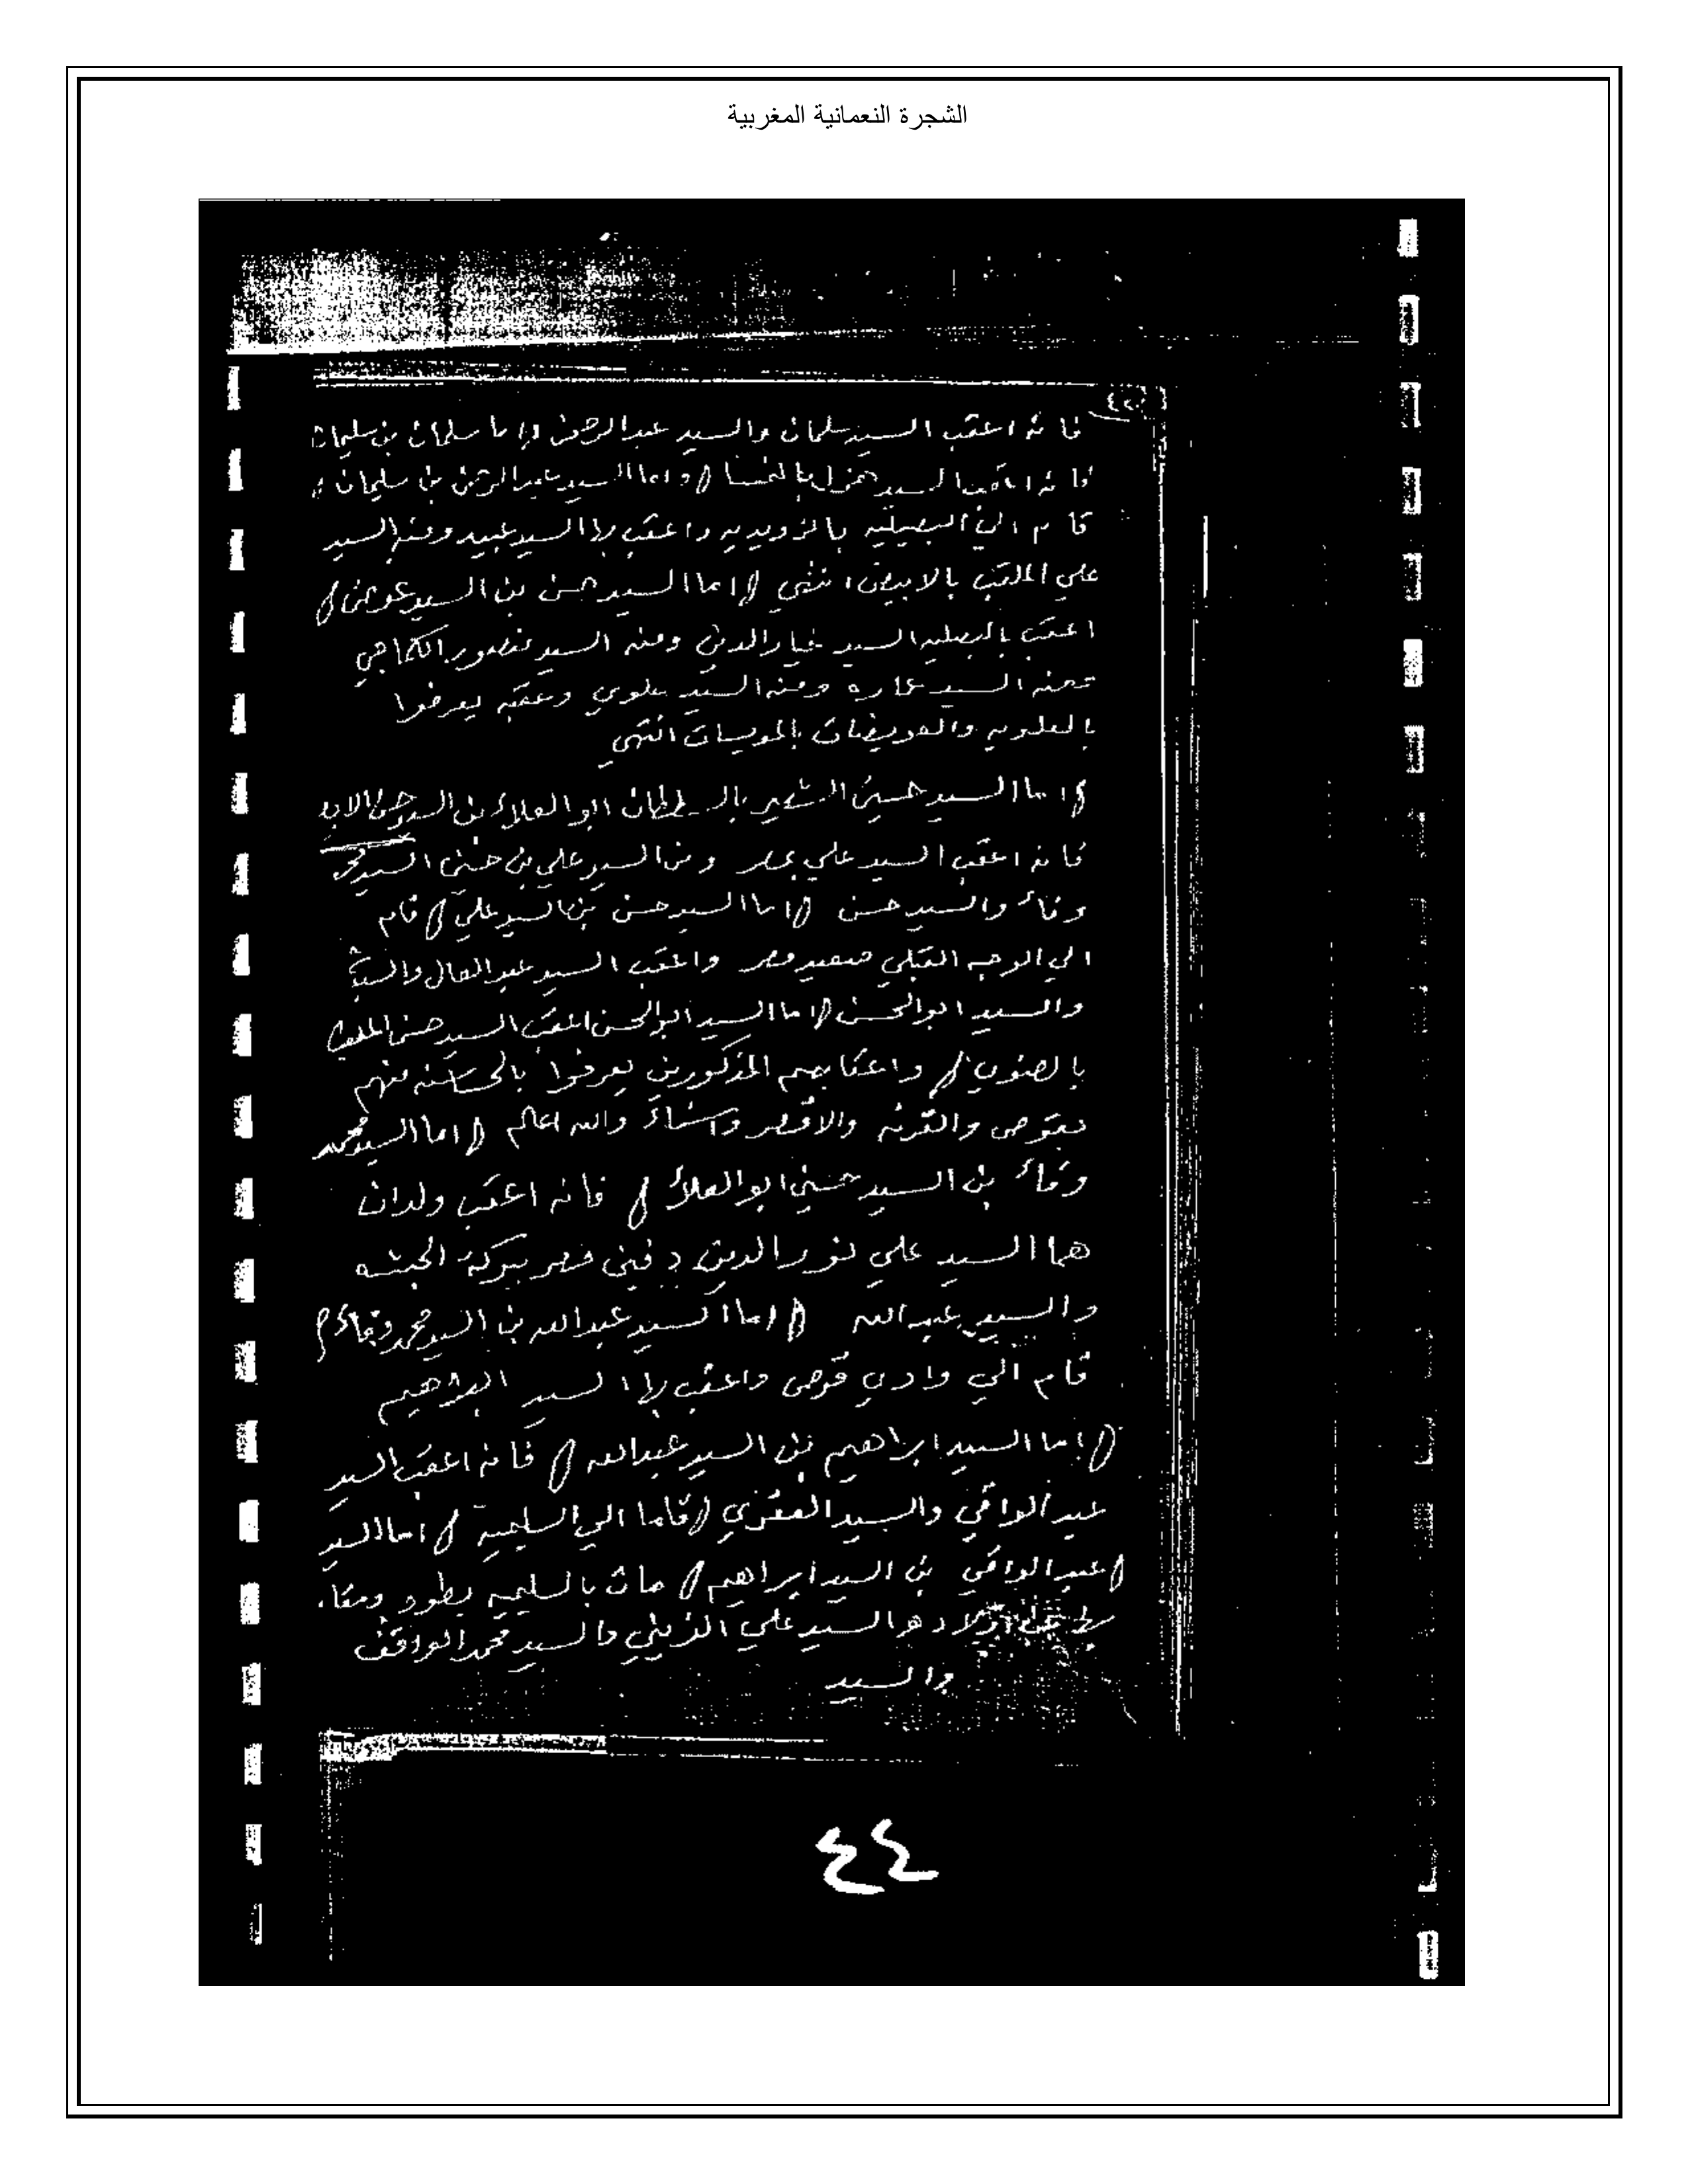 الشجرة النعمانية المغربية
فانه اعقب السيد سلمان والسيد عبد الرحمن واما سلمان بن سليمان
فانه اعقب السيد واما السيد عبد الرحمن بن سليمان
قام الي البصيليه واعقب بها السيد عبيد ومنه السيد
علي الملقب بالابيض انتهي اما السيد حسن بن السيد عوض
اعقب بالبصليه السيد ومنه السيد منصور
ومنه السيد عماره ومنه السيد علوي وعقبه يعرفوا
بالعلويه انتهي
اما السيد حسين الشهير بالسلطان ابو العلاء بن السيد
فانه اعقب السيد علي بمصر ومن السيد علي بن حسين السيد محمد
وفاء والسيد حسن اما السيد حسن بن السيد علي قام
الي الوجه القبلي صعيد مصر واعقب السيد عبد العال
والسيد ابو الحسن اما السيد ابو الحسن اعقب السيد حسن الملقب
واعقابهم المذكورين يعرفوا منهم
بقوص والقرنه والاقصر واسناء والله اعلم اما السيد محمد
وفاء بن السيد حسين ابو العلاء فانه اعقب ولدان
هما السيد علي نور الدين دفين مصر ببركة الحبشه
والسيد عبد الله اما السيد عبد الله بن السيد محمد وفاء
قام الي وادي قوص واعقب بها السيد ابراهيم
اما السيد ابراهيم بن السيد عبد الله فانه اعقب السيد
عبد الواقي والسيد قاما الي السليميه اما السيد
عبد الواقي بن السيد ابراهيم مات بالسليميه
السيد علي الزيني والسيد محمد الواقف
والسيد
٤٤